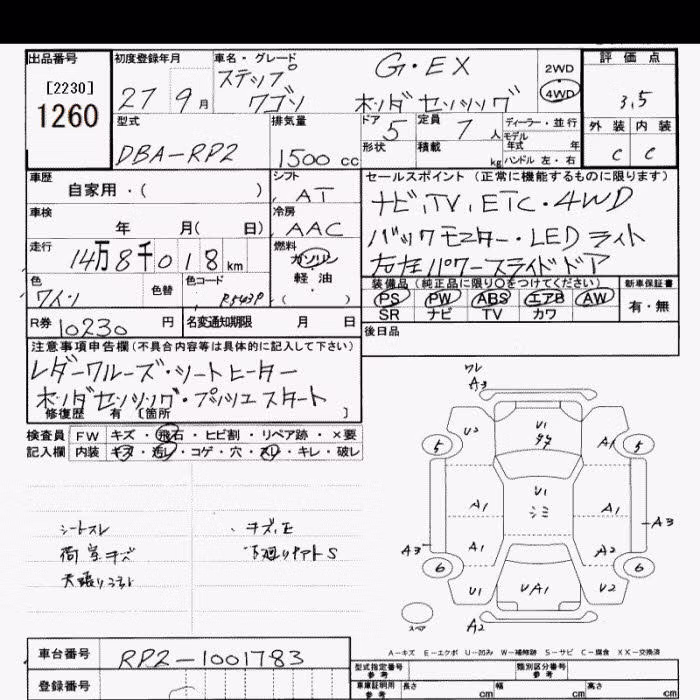 出品番号 初度登録年月 車名・グレード 評価点
[2230] ステップ G・EX 2WD
1260 27 9月 ワゴン ホンダセンシング 4WD 3.5
型式 排気量 ドア 定員 ディーラー・並行 外装 内装
5 7人 モデル年式 年
DBA-RP2 1500cc 形状 積載 kg ハンドル 左・右 C C
車歴 シフト セールスポイント (正常に機能するものに限ります)
自家用・( ) AT ナビ,TV,ETC・4WD
車検 冷房
年 月( 日) AAC バックモニター・LEDライト
走行 燃料
14万8千018km ガソリン 左右パワースライドドア
色 色替 色コード 軽油 装備品 (純正品に限り○をつけてください) 新車保証書
ワイン R543P ( ) PS PW ABS エアB AW 有・無
R券 10230円 名変通知期限 月 日 SR ナビ TV カワ
後日品
注意事項申告欄(不具合内容等は具体的に記入して下さい)
レダークルーズ・シートヒーター
ホンダセンシング・プッシュスタート
修復歴 有 〔箇所 〕
検査員 FW キズ・飛石・ヒビ割・リペア跡・×要
記入欄 内装 キズ・汚レ・コゲ・穴・スレ・キレ・破レ
シートスレ ・キズ,E
荷室キズ 下廻りサビS
天張り
ワレ
A3
U2 U1 A1
5 5
U1
A1 シミ A1
A3
A3 A1 A2
6 6
U1 UA1 U2
スペア A2
A-キズ E-エクボ U-凹み W-補修跡 S-サビ C-腐食 XX-交換済
車台番号 RP2-1001783 型式指定番号 参考 類別区分番号 参考
登録番号 車庫証明用 参考 長さ cm 幅 cm 高さ cm